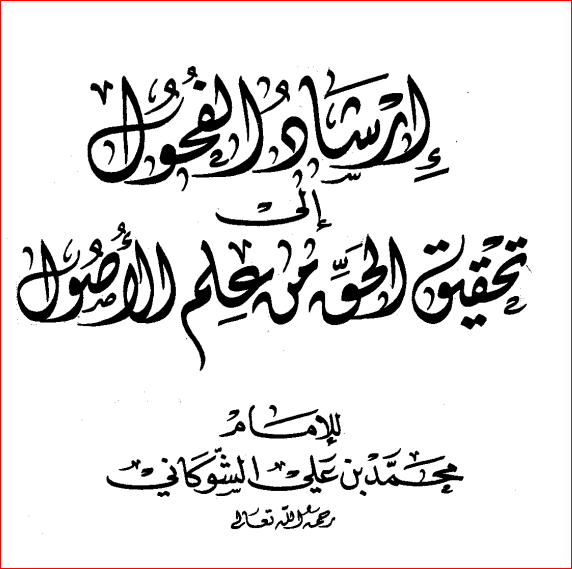 إِرْشَادُ الفُحُول
إلى
تحقيق الحقّ من علم الأصول
للإمام
محمّد بن علي الشّوكاني
رحمه الله تعالى